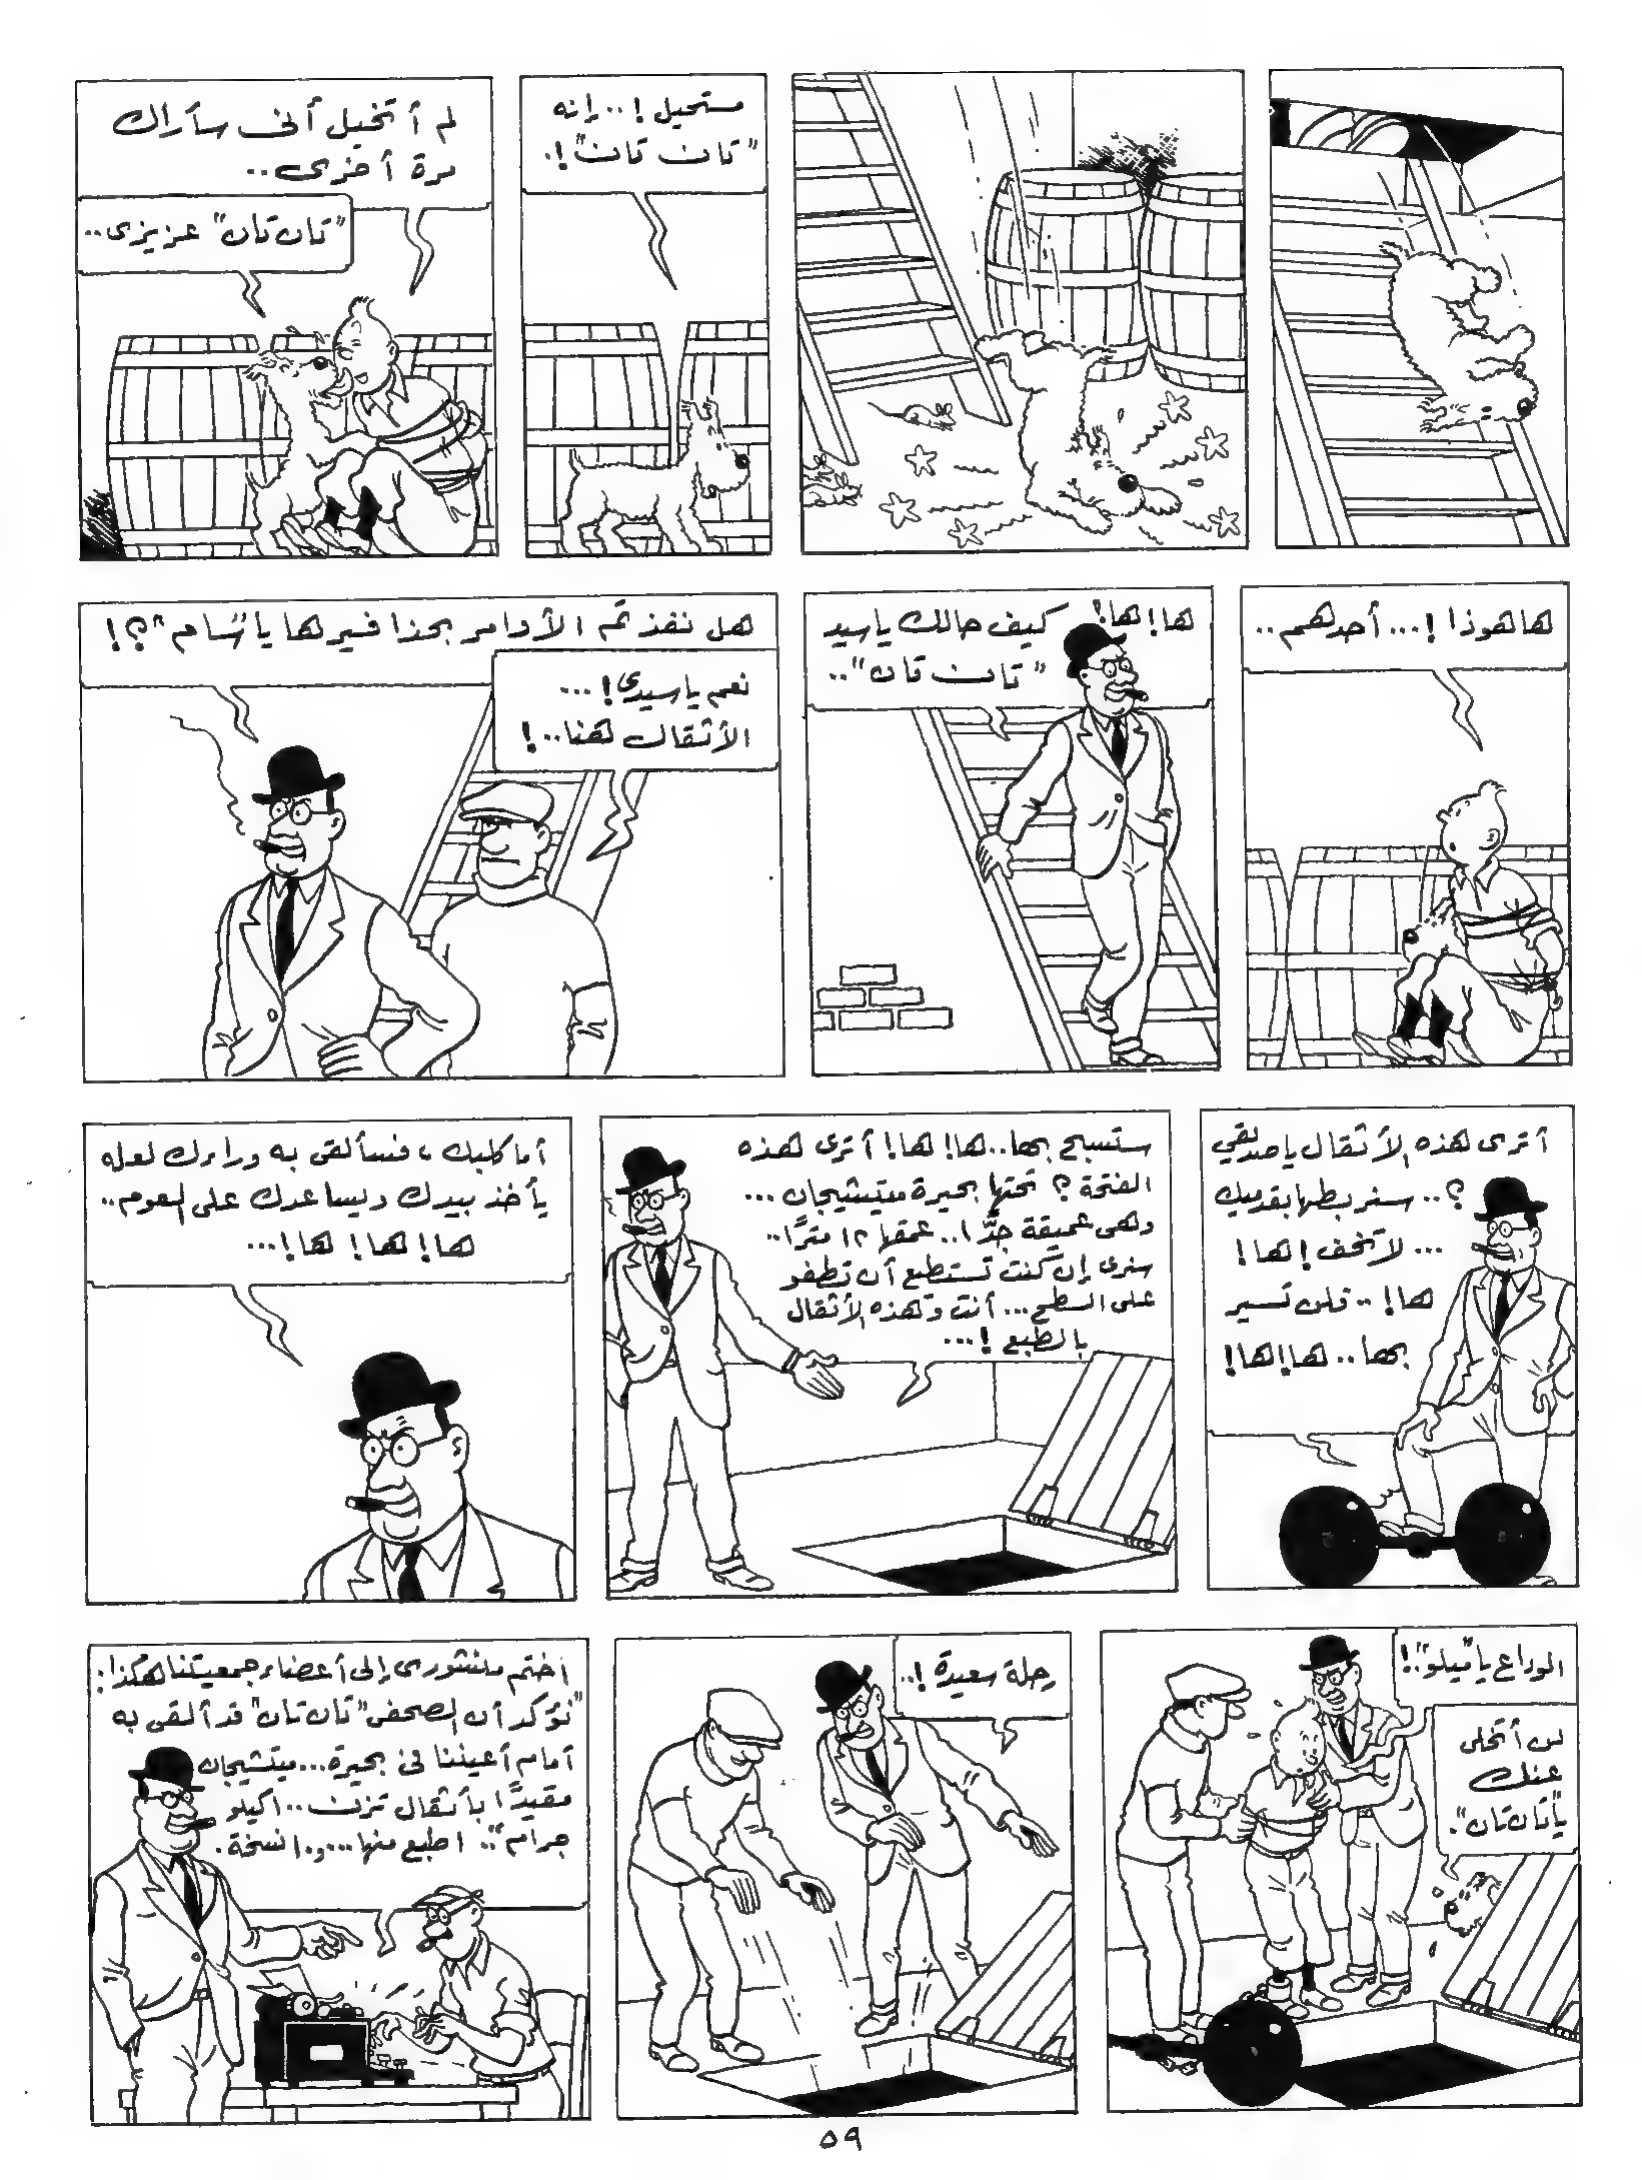 مستحيل!..إنه
"تان تان"!.
لم أتخيل أنى سأراك
مرة أخرى..
"تان تان" عزيزى..
هاهوذا!...أحدهم..
ها!ها! كيف حالك ياسيد
"تان تان"..
هل نفذتم الأوامر بحذافيرها يا"سام"؟!
نعم ياسيدى!...
الأثقال هنا..!
أترى هذه الأثقال ياصديقي
؟.. سنربطها بقدميك
... لاتخف!ها!
ها!.. فلن تسير
بها.. ها!ها!
ستسبح بها..ها!ها! أترى هذه
الفتحة؟ تحتها بحيرة ميتشيجان...
وهى عميقة جدًّا.. عمقها ١٢ مترًا..
سنرى إن كنت تستطيع أن تطفو
على السطح... أنت وهذه الأثقال
بالطبع!...
أما كلبك، فسألقى به وراءك لعله
يأخذ بيدك ويساعدك على العوم..
ها! ها! ها!...
الوداع يا"ميلو"!
لن أتخلى
عنك
يا"تان تان".
رحلة سعيدة!..
أختم منشورى إلى أعضاء جمعيتنا هكذا:
"نؤكد أن الصحفى "تان تان" قد ألقى به
أمام أعيننا فى بحيرة...ميتشيجان
مقيدًا بأثقال تزن..
جرام".. اطبع منها نسخة.
٥٩